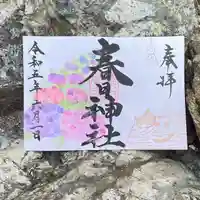 奉拝
春日神社
令和五年六月一日